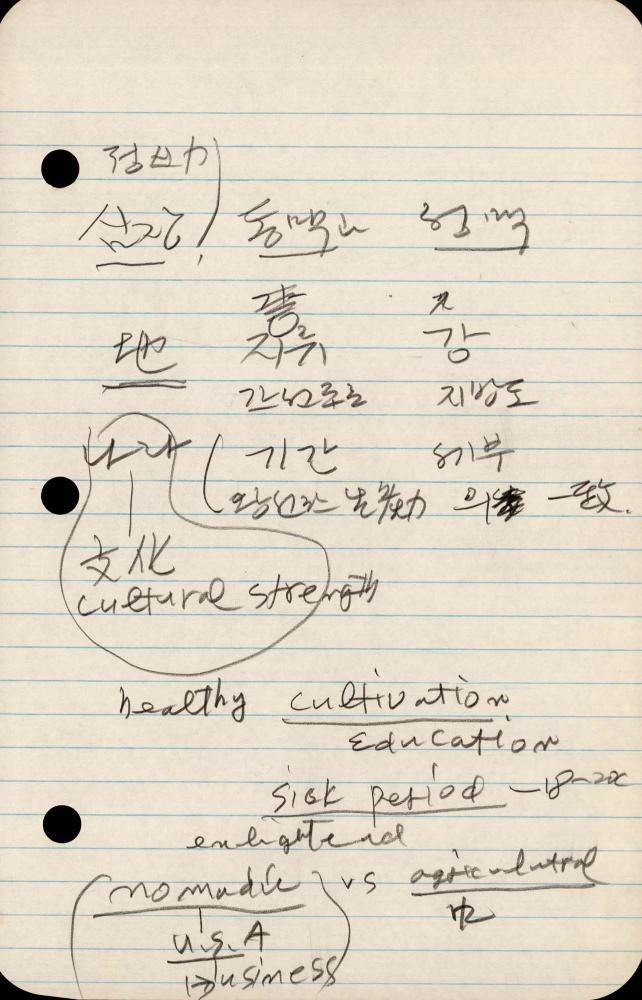 심장? 동맥고 정맥
地 지류 강
간선도로 지방도
나라 기간 세부
一致.
文化
cultural strength
healthy cultivation
Education
sick period — 18~20c
enlightend
nomadic vs agricultural
U.S.A 中
Business